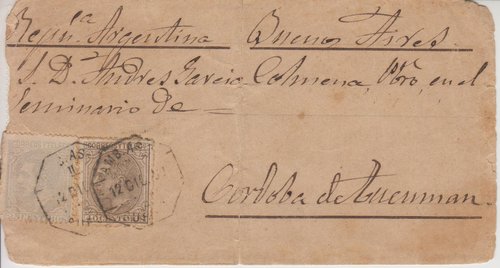 Repúca Argentina Buenos Aires.
S. D. Andres Garcia Colmena, Pbro, en el
Seminario de =
Cordoba de Tucuman.
AMB AS
12 DIC
12 DIC